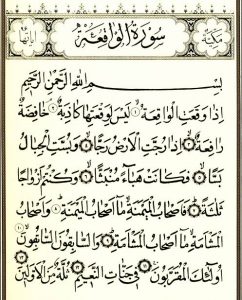 مكية سورة الواقعة آياتها
بسم الله الرحمن الرحيم
إذا وقعت الواقعة ليس لوقعتها كاذبة خافضة
رافعة إذا رجت الأرض رجا وبست الجبال
بسا فكانت هباء منبثا وكنتم أزواجا
ثلثة فأصحاب الميمنة ما أصحاب الميمنة وأصحاب
المشأمة ما أصحاب المشأمة والسابقون السابقون
أولئك المقربون في جنات النعيم ثلة من الأولين